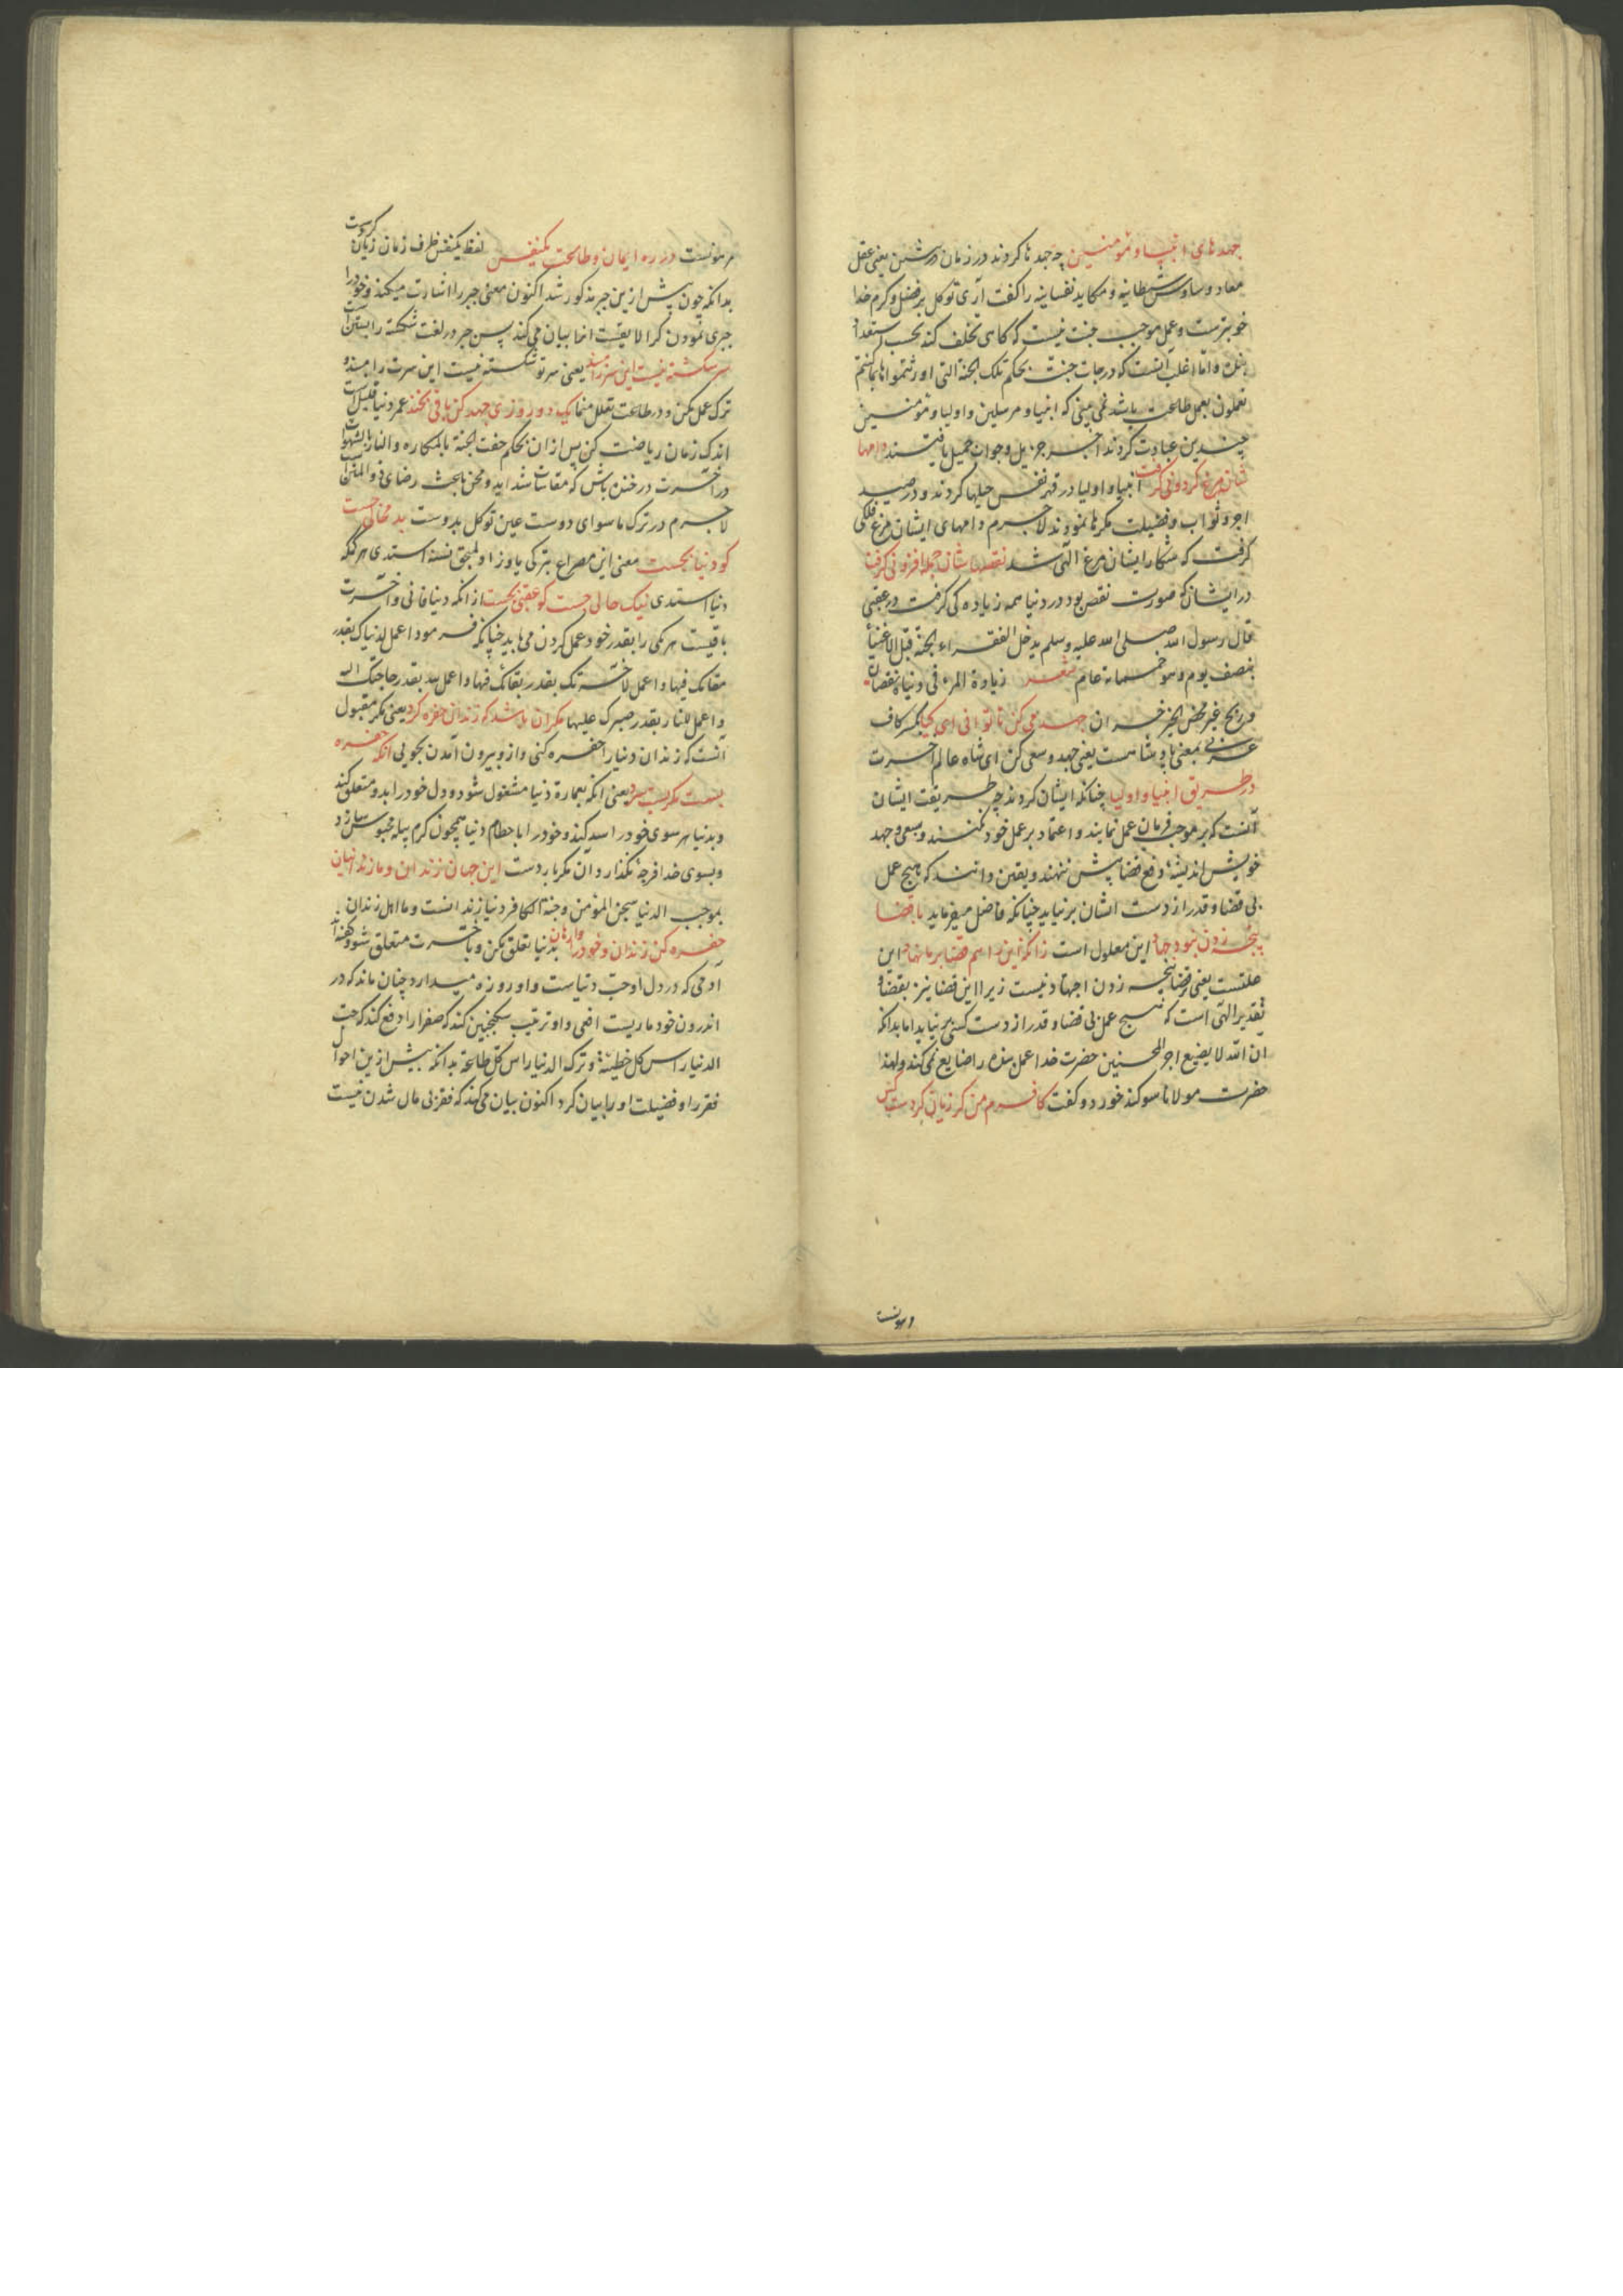 جهدهای انبیا و مؤمنین چه جهدها کردند در زمان درشتن یعنی عقل
معاد وساوس شیطانیه و مکاید نفسانیه را کفت آری توکل بر فضل و کرم خدا
خوبترست و عمل موجب جنت نیست که کاهی تخلف کند بحسب استعداد
و اما اغلب آنست که درجات جنت بحکم تلک الجنة التی اورثتموها بما کنتم
تعملون بعمل طاعت باشد نمی بینی که انبیا و مرسلین و اولیا و مؤمنین
چندین عبادت کردند اجر جزیل و جواب جمیل یافتند دامها
شان مرغ کردونی کرفت انبیا و اولیا در قهر نفس حیلها کردند و در صید
اجر و ثواب و فضیلت مکرها نمودند لاجرم دامهای ایشان مرغ فلکی
کرفت که شکار ایشان مرغ الهی شد نقصهاشان جمله افزونی کرفت
در ایشان که صورت نقص بود در دنیا همه زیاده کی کرفت در عقبی
قال رسول الله صلی الله علیه و سلم یدخل الفقراء الجنة قبل الاغنیاء
بنصف یوم و هو خمسمائة عام شعر زیادة المرء فی دنیاه نقصان
و ربح غیر محض الخیر خسران جهد می کن تا توانی ای کیا بکسر کاف
عربی بمعنی پادشاهست یعنی جهد و سعی کن ای شاه عالم آخرت
در طریق انبیا و اولیا چنانکه ایشان کردند چه طریقت ایشان
آنست که بر موجب فرمان عمل نمایند و اعتماد بر عمل خود نکنند و بسعی و جهد
خویش اندیشهٔ دفع قضا پیش ننهند و یقین دانند که هیچ عمل
بی قضا و قدر از دست ایشان برنیاید چنانکه فاضل میفرماید با قضا
پنجه زدن نبود جهاد این معلول است زانکه این را هم قضا بر ما نهاد این
علتست یعنی با قضا پنجه زدن اجتهاد نیست زیرا این قضا نیز بقضا و
تقدیر الهی است که هیچ عمل بی قضا و قدر از دست کسی برنیاید اما بدانکه
ان الله لا یضیع اجر المحسنین حضرت خدا عمل بنده را ضایع نمی کند و لهذا
حضرت مولانا سوکند خورد و کفت کافرم من کر زیان کردست کس
در مؤنست
در ره ایمان و طاعت یکنفس لفظ یکنفس ظرف زمان زیان کردست
بدانکه چون پیش ازین جبر مذکور شد اکنون معنی جبر را اشارت میکند و خود را
جبری نمودن کرا لایقست انها بیان می کند پس جبر در لغت شکسته را بستن است
سر شکسته نیست این سر را مبند یعنی سر تو شکسته نیست این سرت را مبند و
ترک عمل مکن و در طاعت تعلل منما یک دو روزی جهد کن باقی بخند عمر دنیا قلیل است
اندک زمان ریاضت کن پس از آن بحکم حفت الجنة بالمکاره و النار بالشهوات
در آخرت در خنده باش که مقاسات شداید و محن باعث رضای ذو المنن است
لاجرم در ترک ماسوای دوست عین توکل بدوست بد محالی جست
کو دنیا بجست معنی این مصراع بترکی یاوز اولمجق نسنه استدی هر نکه
دنیا استدی نیک حالی جست کو عقبی بجست از آنکه دنیا فانی و آخرت
باقیست هر یکی را بقدر خود عمل کردن می باید چنانکه فرمود اعمل لدنیاک بقدر
مقامک فیها و اعمل لآخرتک بقدر بقائک فیها و اعمل لله بقدر حاجتک الیه
و اعمل للنار بقدر صبرک علیها مکر آن باشد که زندان حفره کرد یعنی مکر مقبول
آنست که زندان دنیا را حفره کنی و ازو بیرون آمدن بجویی آنکه حفره
بست مکریست سرد یعنی آنکه بعمارة دنیا مشغول شود و دل خود را بدو متعلق کند
و بدنیا هر سوی خود را سد کند و خود را با حطام دنیا همچون کرم پیله محبوس سازد
و بسوی خدا فرجه نکذارد آن مکر باردست این جهان زندان و ما زندانیان
بموجب الدنیا سجن المؤمن و جنة الکافر دنیا زندانست و ما اهل زندان
حفره کن زندان و خود را وا رهان بدنیا تعلق مکن و بآخرت متعلق شو و کفته اند
آدمی که در دل او حب دنیاست و او روزه میدارد چنان ماند که در
اندرون خود ماریست افعی و او ترتیب سکنجبین کند که صفرا را دفع کند که حب
الدنیا رأس کل خطیئة و ترک الدنیا رأس کل طاعة بدانکه پیش ازین احوال
فقر را و فضیلت او را بیان کرد اکنون بیان می کند که فقر بی مال شدن نیست